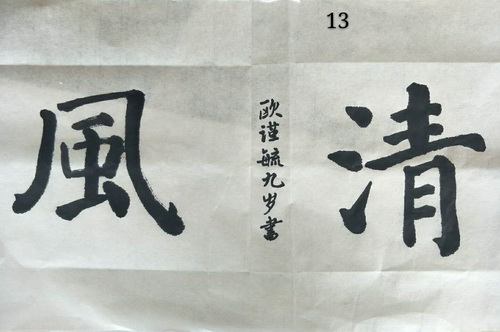 13
清風
欧谨毓九岁書